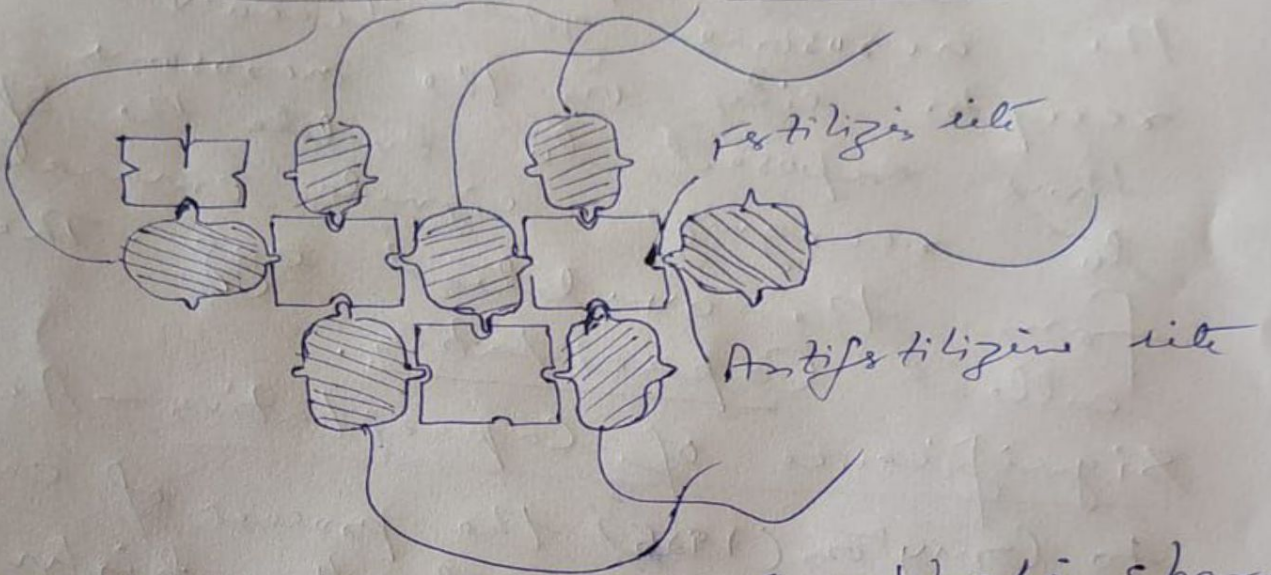 Fertilizin site
Antifertilizin site